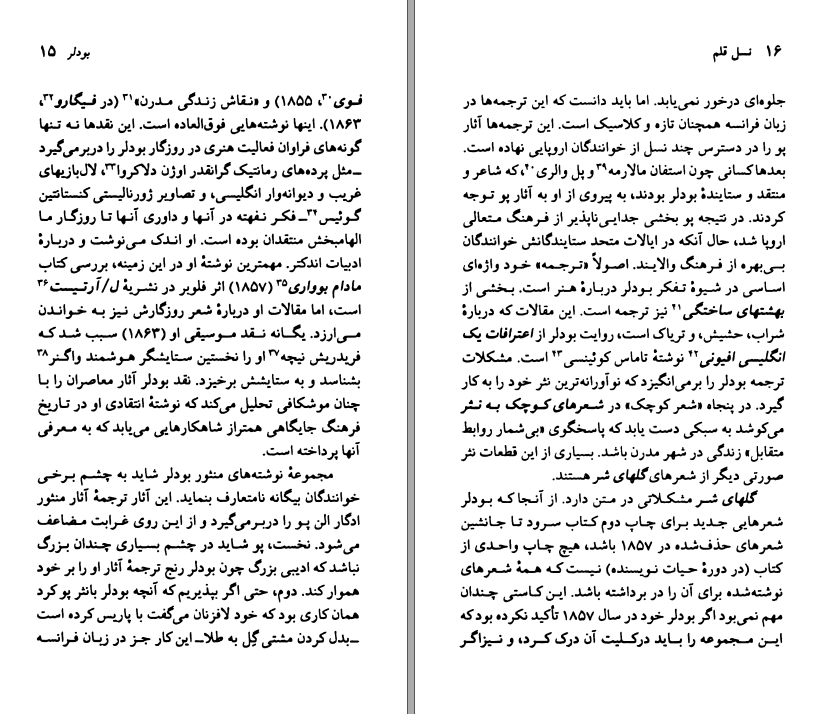 بودلر ۱۵
فوی۳۰، ۱۸۵۵) و «نقاش زندگی مدرن»۳۱ (در فیگارو۳۲،
۱۸۶۳). اینها نوشته‌هایی فوق‌العاده است. این نقدها نه تنها
گونه‌های فراوان فعالیت هنری در روزگار بودلر را دربرمی‌گیرد
ــ مثل پرده‌های رمانتیک گرانقدر اوژن دلاکروا۳۳، لال‌بازیهای
غریب و دیوانه‌وار انگلیسی، و تصاویر ژورنالیستی کنستانتین
گوئیس۳۴ــ فکر نهفته در آنها و داوری آنها تا روزگار ما
الهامبخش منتقدان بوده است. او اندک می‌نوشت و دربارهٔ
ادبیات اندکتر. مهمترین نوشتهٔ او در این زمینه، بررسی کتاب
مادام بوواری۳۵ (۱۸۵۷) اثر فلوبر در نشریهٔ ل/آرتیست۳۶
است، اما مقالات او دربارهٔ شعر روزگارش نیز به خواندن
می‌ارزد. یگانه نقد موسیقی او (۱۸۶۳) سبب شد که
فریدریش نیچه۳۷ او را نخستین ستایشگر هوشمند واگنر۳۸
بشناسد و به ستایشش برخیزد. نقد بودلر آثار معاصران را با
چنان موشکافی تحلیل می‌کند که نوشتهٔ انتقادی او در تاریخ
فرهنگ جایگاهی همتراز شاهکارهایی می‌یابد که به معرفی
آنها پرداخته است.
مجموعهٔ نوشته‌های منثور بودلر شاید به چشم برخی
خوانندگان بیگانه نامتعارف بنماید. این آثار ترجمهٔ آثار منثور
ادگار الن پو را دربرمی‌گیرد و از این روی غرابت مضاعف
می‌شود. نخست، پو شاید در چشم بسیاری چندان بزرگ
نباشد که ادیبی بزرگ چون بودلر رنج ترجمهٔ آثار او را بر خود
هموار کند. دوم، حتی اگر بپذیریم که آنچه بودلر بانثر پو کرد
همان کاری بود که خود لافزنان می‌گفت با پاریس کرده است
ــ بدل کردن مشتی گِل به طلاــ این کار جز در زبان فرانسه
۱۶ نسل قلم
جلوه‌ای درخور نمی‌یابد. اما باید دانست که این ترجمه‌ها در
زبان فرانسه همچنان تازه و کلاسیک است. این ترجمه‌ها آثار
پو را در دسترس چند نسل از خوانندگان اروپایی نهاده است.
بعدها کسانی چون استفان مالارمه۳۹ و پل والری۴۰، که شاعر و
منتقد و ستایندهٔ بودلر بودند، به پیروی از او به آثار پو توجه
کردند. در نتیجه پو بخشی جدایی‌ناپذیر از فرهنگ متعالی
اروپا شد، حال آنکه در ایالات متحد ستایندگانش خوانندگان
بی‌بهره از فرهنگ والایند. اصولاً «ترجمه» خود واژه‌ای
اساسی در شیوهٔ تفکر بودلر دربارهٔ هنر است. بخشی از
بهشتهای ساختگی۴۱ نیز ترجمه است. این مقالات که دربارهٔ
شراب، حشیش، و تریاک است، روایت بودلر از اعترافات یک
انگلیسی افیونی۴۲ نوشتهٔ تاماس کوئینسی۴۳ است. مشکلات
ترجمه بودلر را برمی‌انگیزد که نوآورانه‌ترین نثر خود را به کار
گیرد. در پنجاه «شعر کوچک» در شعرهای کوچک به نثر
می‌کوشد به سبکی دست یابد که پاسخگوی «بی‌شمار روابط
متقابل» زندگی در شهر مدرن باشد. بسیاری از این قطعات نثر
صورتی دیگر از شعرهای گلهای شر هستند.
گلهای شر مشکلاتی در متن دارد. از آنجا که بودلر
شعرهایی جدید برای چاپ دوم کتاب سرود تا جانشین
شعرهای حذف‌شده در ۱۸۵۷ باشد، هیچ چاپ واحدی از
کتاب (در دورهٔ حیات نویسنده) نیست که همهٔ شعرهای
نوشته‌شده برای آن را در برداشته باشد. این کاستی چندان
مهم نمی‌بود اگر بودلر خود در سال ۱۸۵۷ تأکید نکرده بود که
این مجموعه را باید درکلیت آن درک کرد، و نیزاگر